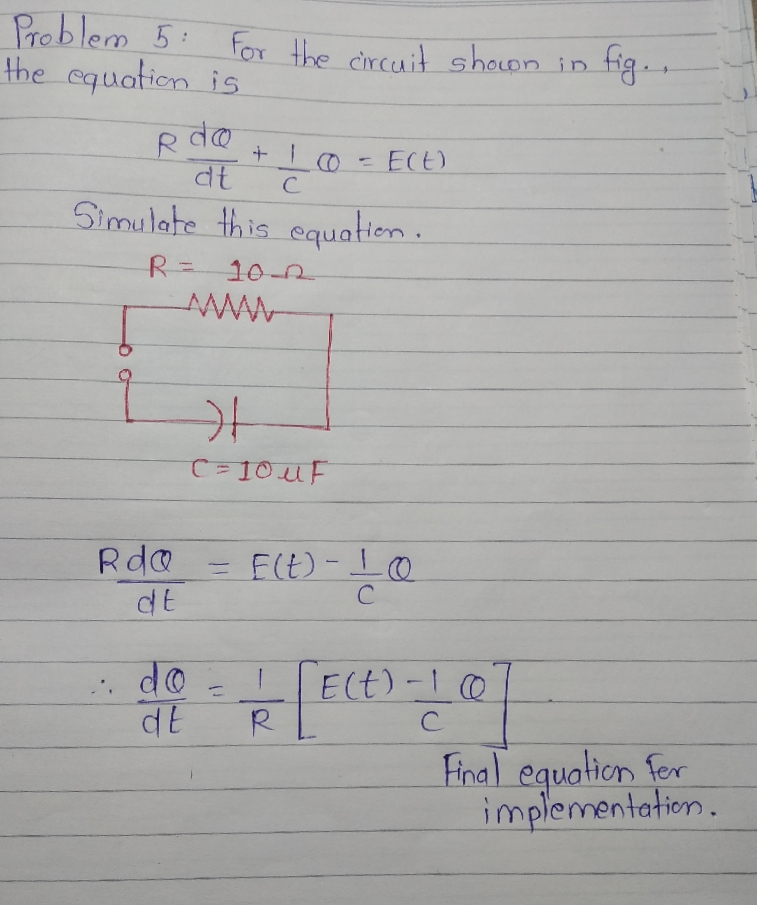 Problem 5: For the circuit shown in fig..,
the equation is
R dQ/dt + 1/C Q = E(t)
Simulate this equation.
R = 10 Ω
C = 10 uF
R dQ/dt = E(t) - 1/C Q
∴ dQ/dt = 1/R [E(t) - 1/C Q]
Final equation for
implementation.